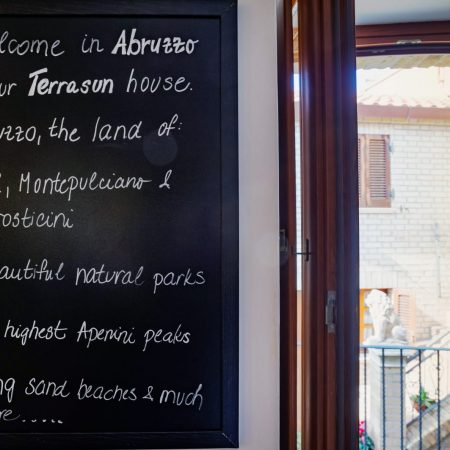 lcome in Abruzzo
ur Terrasun house.
uzzo, the land of:
, Montepulciano &
rosticini
autiful natural parks
highest Apenini peaks
ng sand beaches & much
re.....